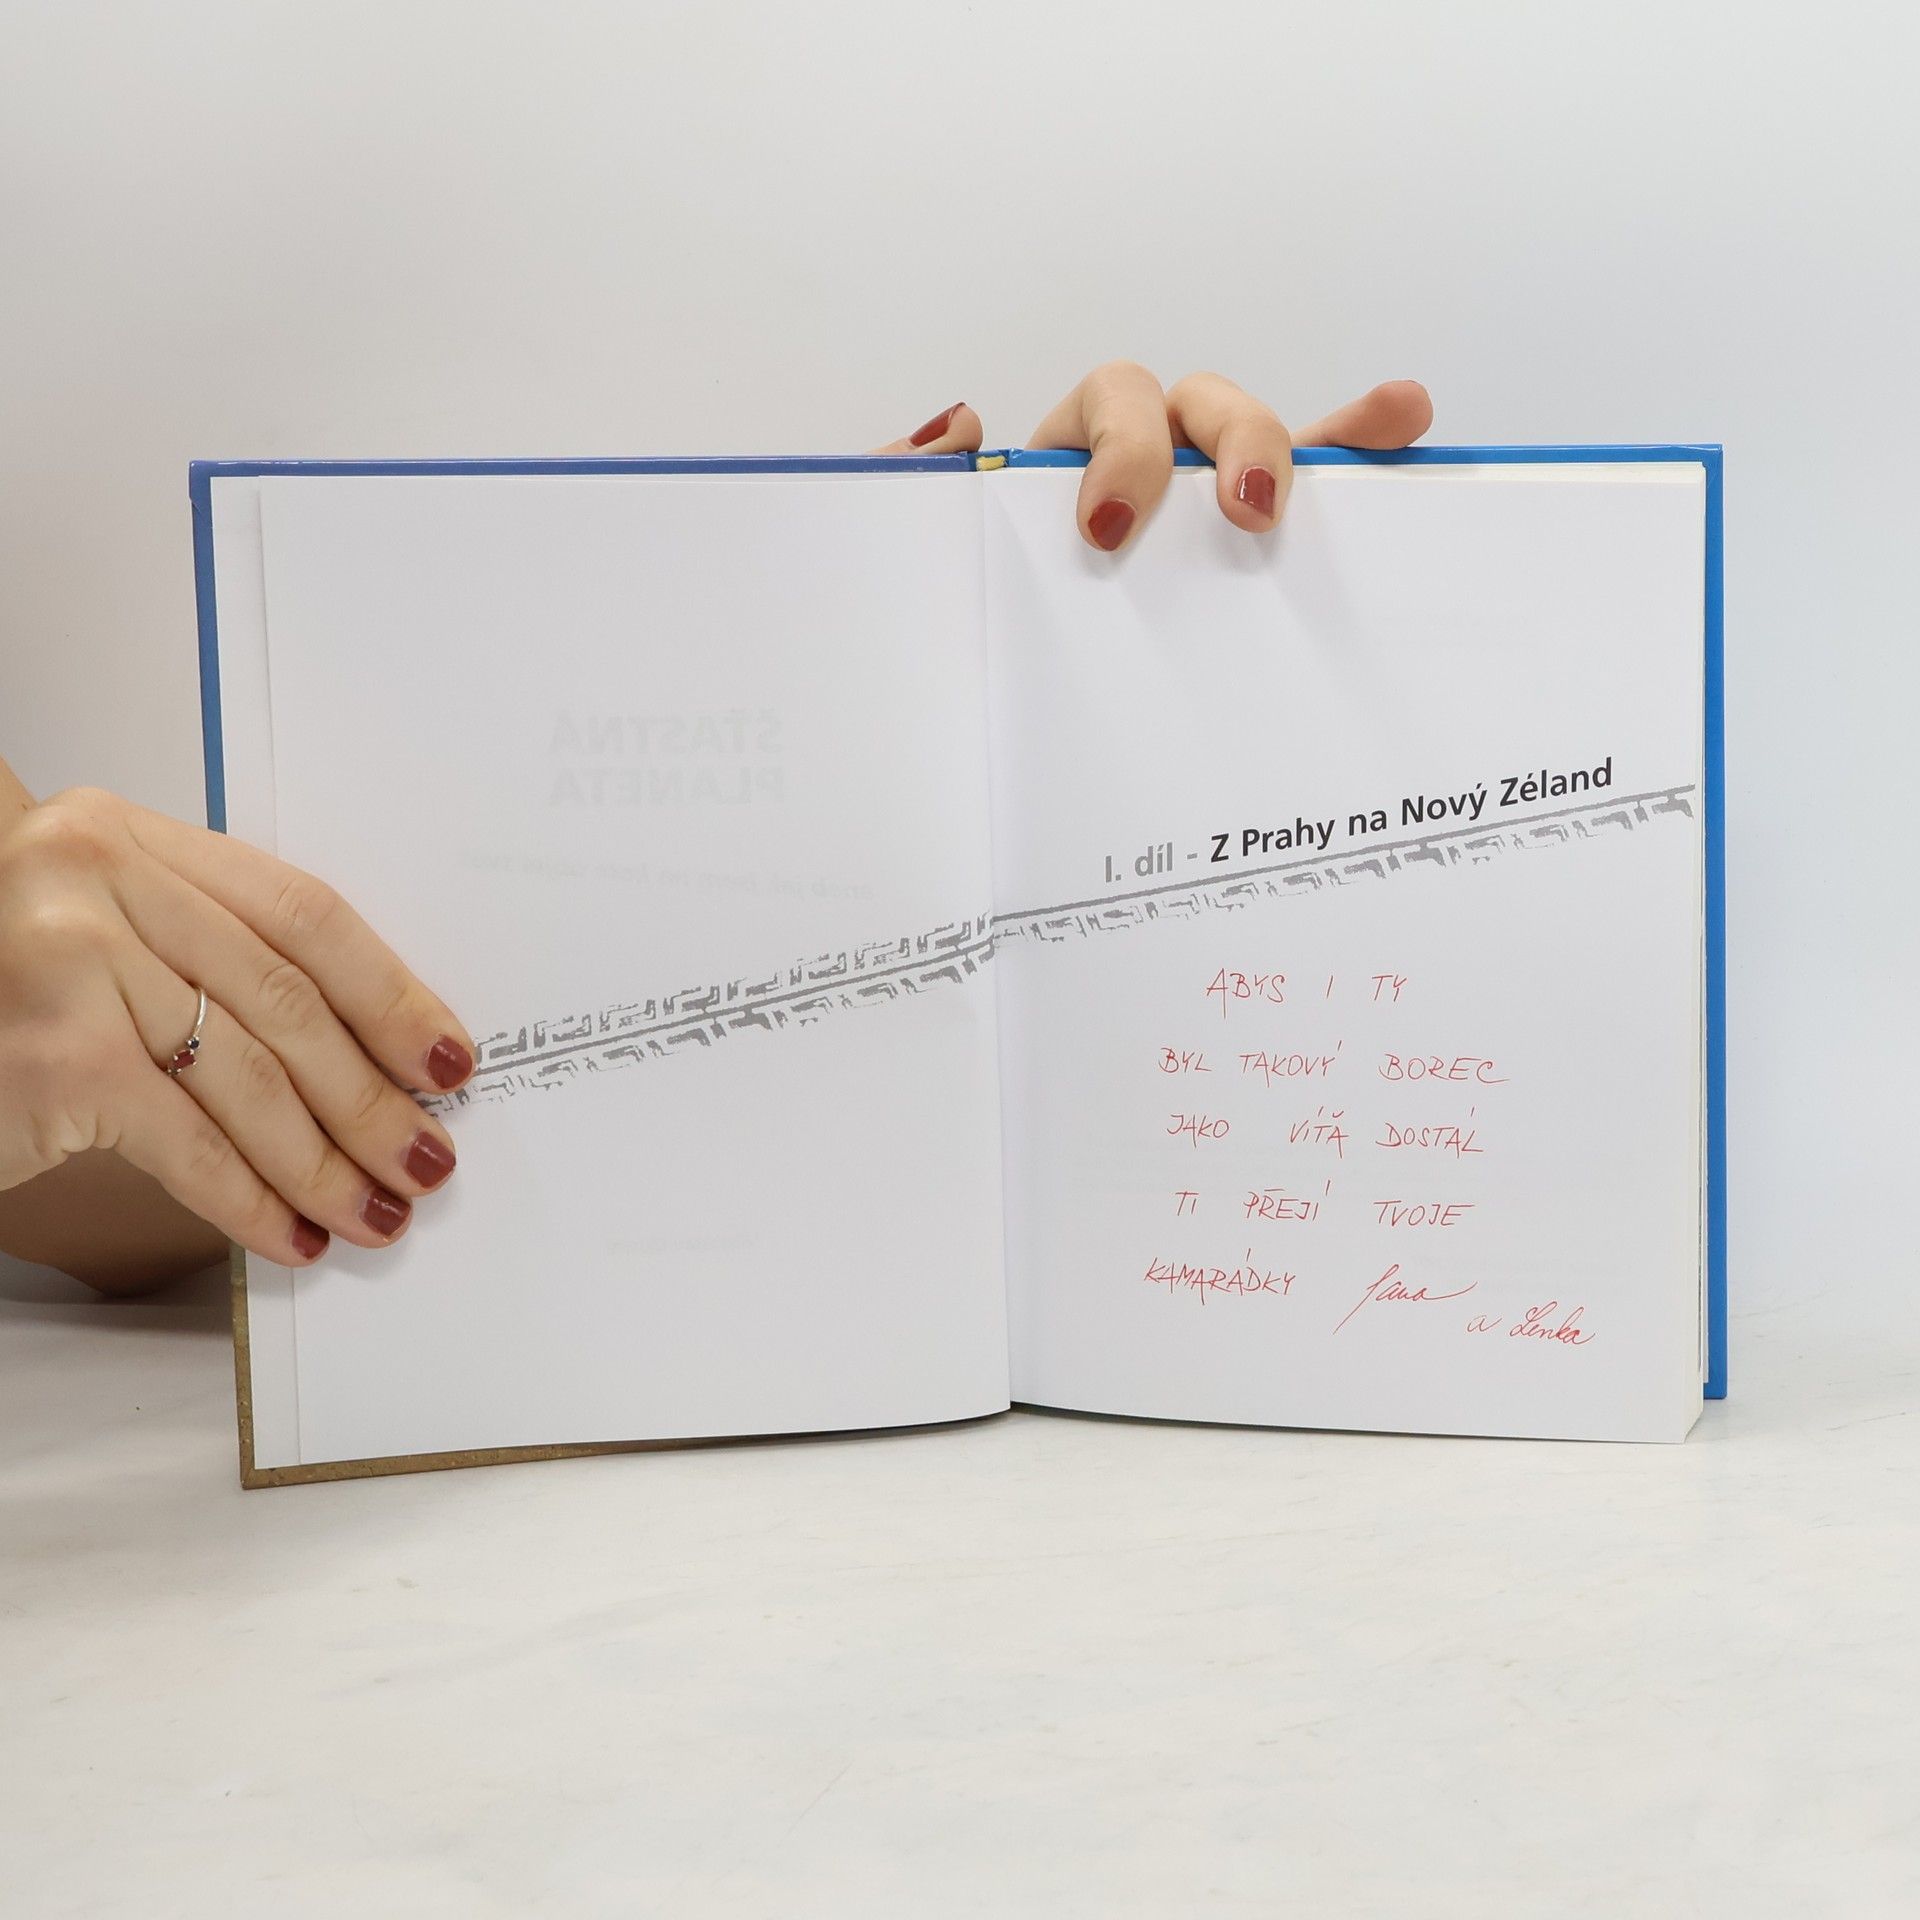 ŠŤASTNÁ
PLANETA
I. díl - Z Prahy na Nový Zéland
ABYS I TY
BYL TAKOVÝ BOREC
JAKO VÍŤA DOSTÁL
TI PŘEJÍ TVOJE
KAMARÁDKY Jana
a Lenka